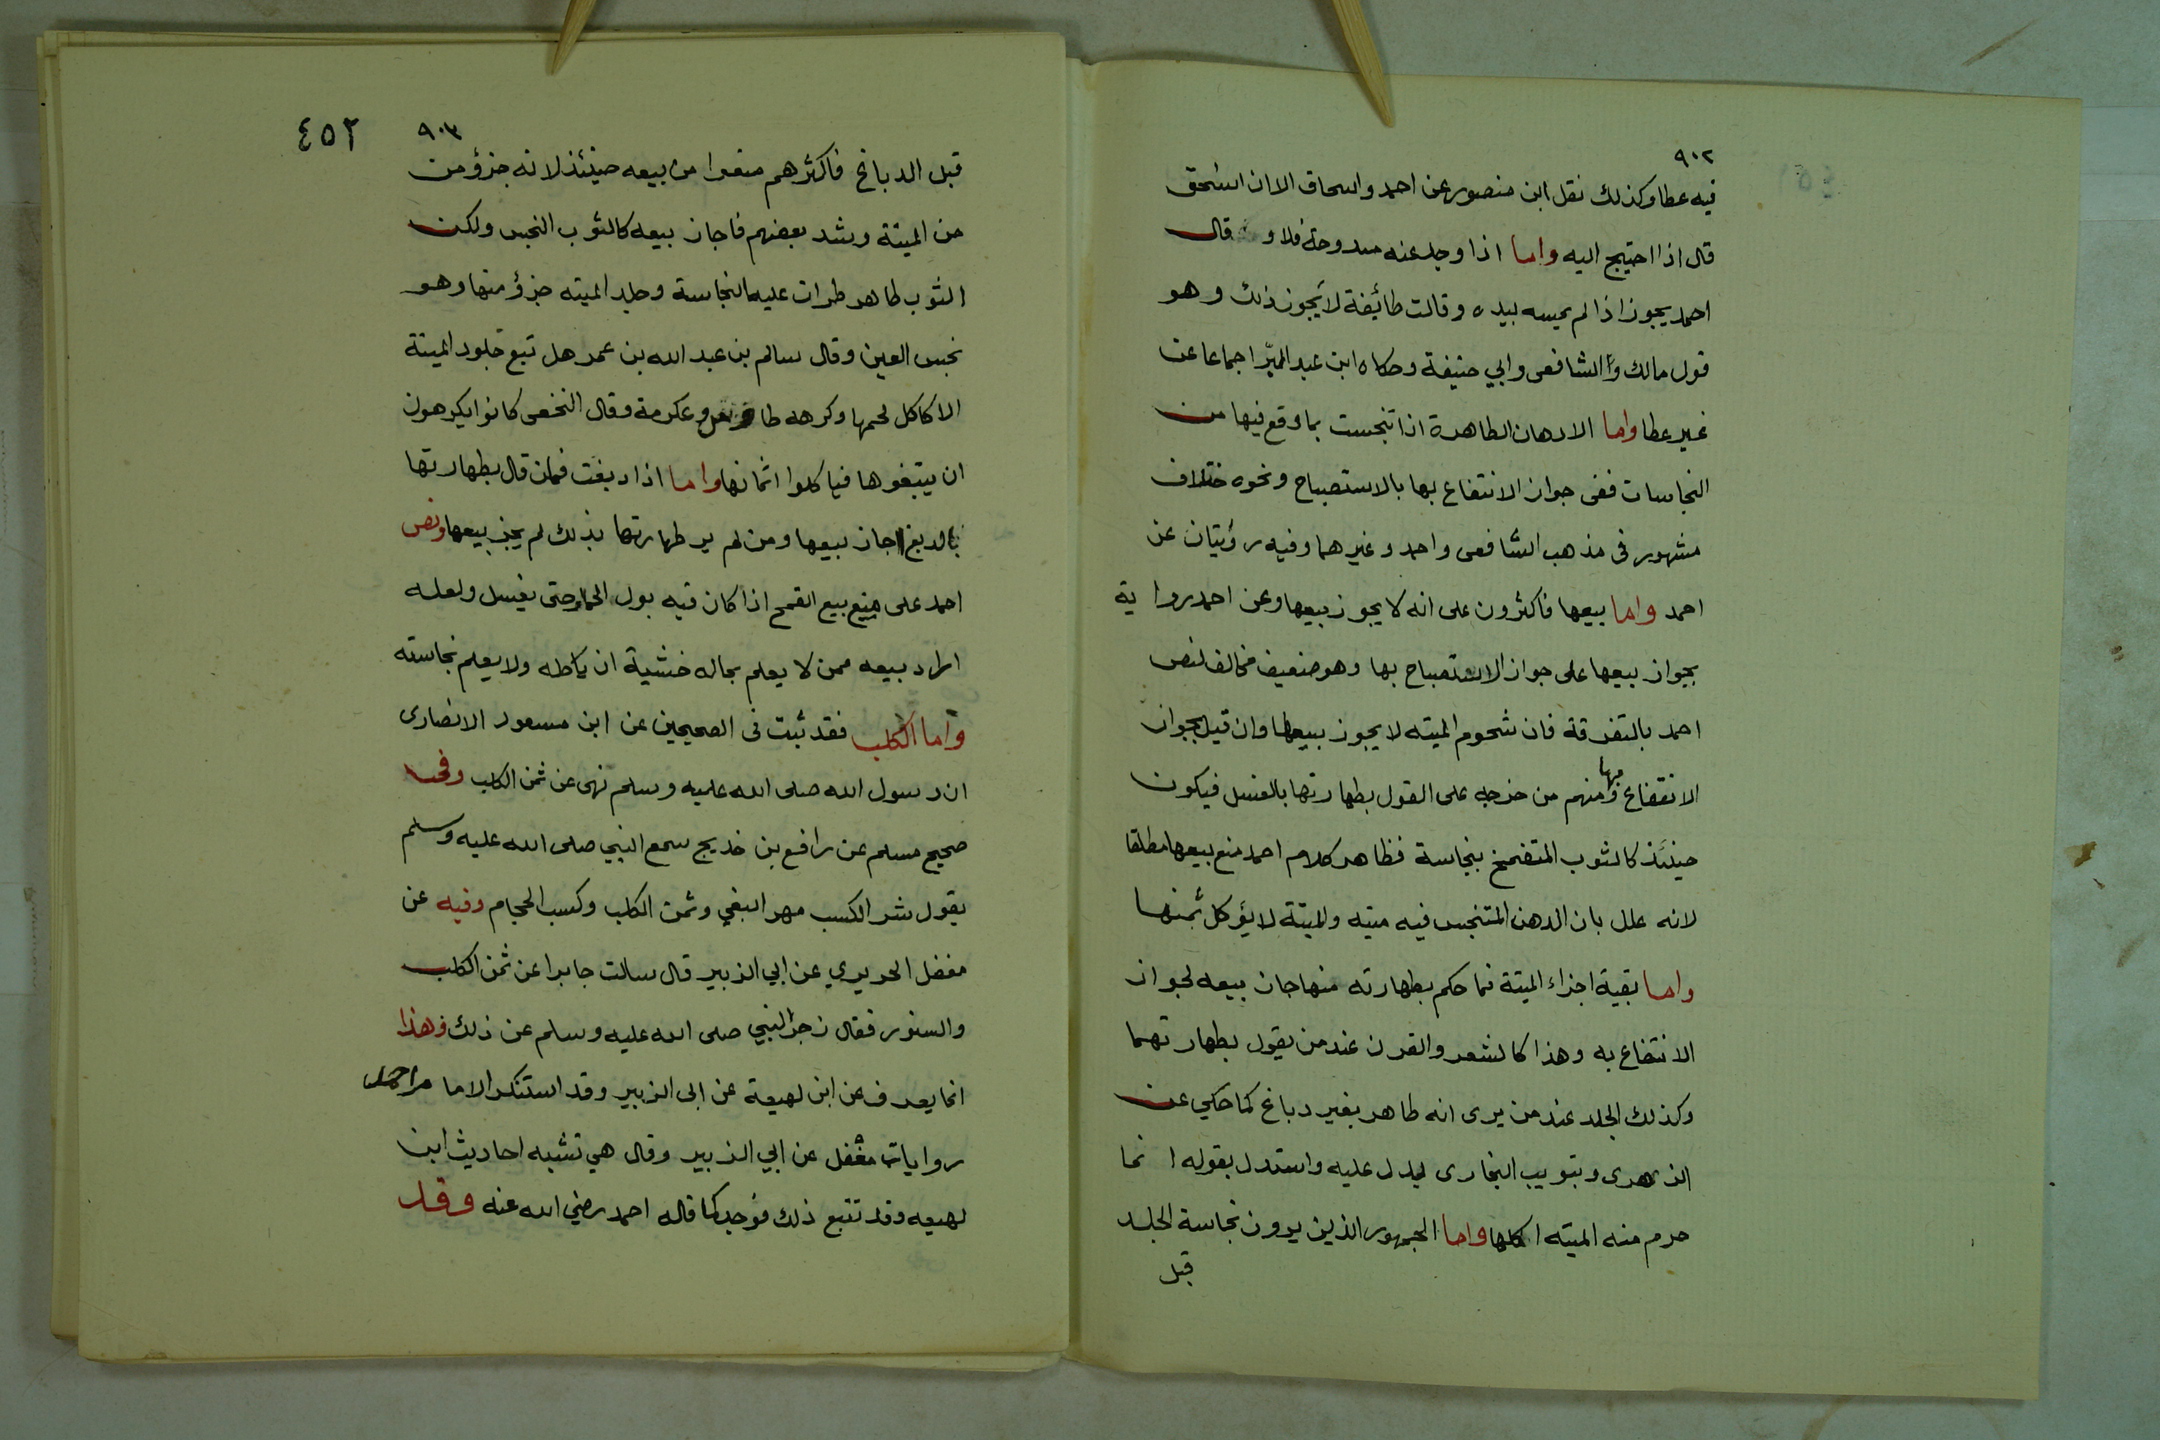 ٩٠٢
فيه عطا وكذلك نقل ابن منصور عن احمد واسحاق الا ان اسحق
قال اذا احتيج اليه واما اذا وجد عنه مندوحة فلا و قال
احمد يجوز اذا لم يمسه بيده وقالت طائفة لا يجوز ذلك وهو
قول مالك والشافعى وابي حنيفة وحكاه ابن عبد البر اجماعا عن
غير عطا واما الادهان الطاهرة اذا تنجست بما وقع فيها من
النجاسات ففى جواز الانتفاع بها بالاستصباح ونحوه ختلاف
مشهور فى مذهب الشافعى واحمد وغيرهما وفيه روئيتان عن
احمد واما بيعها فاكثرون على انه لا يجوز بيعها وعن احمد رواية
بجواز بيعها على جواز الاستصباح بها وهو ضعيف مخالف لنص
احمد بالتفرقة فان شحوم الميته لا يجوز بيعها وان قيل بجواز
الانتفاع بها ومنهم من خرجه على القول بطهارتها بالغسل فيكون
حينئذ كالثوب المتضمخ بنجاسة فظاهر كلام احمد منع بيعها مطلقا
لانه علل بان الدهن المتنجس فيه ميته والميتة لا يؤكل ثمنها
واما بقية اجزاء الميتة فما حكم بطهارته منها جاز بيعه لجواز
الانتفاع به وهذا كالشعر والقرن عند من يقول بطهارتهما
وكذلك الجلد عند من يرى انه طاهر بغير دباغ كما حكي عن
الزهرى وتبويب البخارى يدل عليه واستدل بقوله انما
حرم منه الميته اكلها واما الجمهور الذين يرون نجاسة الجلد
قبل
٩٠٣
٤٥٢
قبل الدباغ فاكثرهم منعوا من بيعه حينئذ لانه جزؤ من
من الميتة وشد بعضهم فاجاز بيعه كالثوب النجس ولكن
الثوب طاهر طرات عليه النجاسة وجلد الميته جزؤ منها وهو
نجس العين وقال سالم بن عبد الله بن عمر هل تبع جلود الميتة
الا كاكل لحمها وكرهه طاوس وعكرمة وقال النخعى كانوا يكرهون
ان يبتغوها فياكلوا اثمانها واما اذا دبغت فمن قال بطهارتها
بالدبغ اجاز بيعها ومن لم ير طهارتها بذلك لم يجز بيعها ونص
احمد على منع بيع القمح اذا كان فيه بول الحمار حتى يغسل ولعله
اراد بيعه ممن لا يعلم بحاله خشية ان ياكله ولا يعلم نجاسته
واما الكلب فقد ثبت فى الصحيحين عن ابن مسعود الانصارى
ان رسول الله صلى الله عليه وسلم نهى عن ثمن الكلب وفى
صحيح مسلم عن رافع بن خديج سمع النبي صلى الله عليه وسلم
يقول شر الكسب مهر البغي وثمن الكلب وكسب الحجام وفيه عن
مغفل الحريري عن ابي الزبير قال سالت جابرا عن ثمن الكلب
والسنور فقال زجر النبي صلى الله عليه وسلم عن ذلك وهذا
انما يعرف عن ابن لهيعة عن ابى الزبير وقد استنكر الامام احمد
روايات مغفل عن ابي الزبير وقال هي تشبه احاديث ابن
لهيعه وقد تتبع ذلك فوجد كما قاله احمد رضي الله عنه وقد